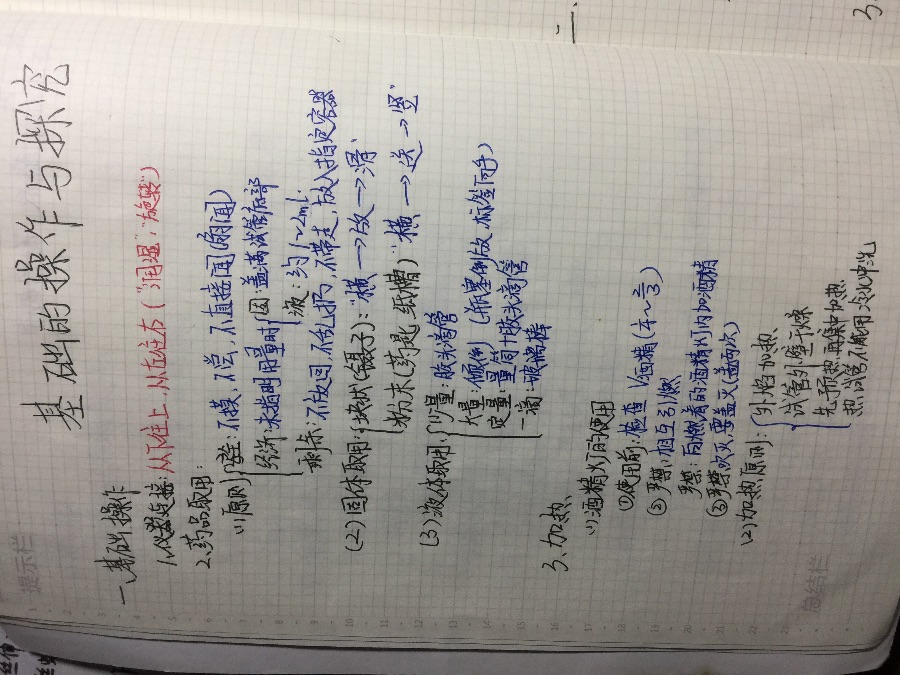 基础的操作与探究
提示栏
一、基础操作
1.仪器连接：从下往上，从左往右（"润湿"，"旋转"）
2.药品取用：
(1)原则 安全：不摸、不尝、不直接闻(扇闻)
经济：未指明用量时 固：盖满试管底部
液：约1~2mL
剩余：不放回、不乱扔、不带走，放入指定容器
(2)固体取用：块状(镊子)："横→放→滑"
粉末(药匙、纸槽)"横→送→竖"
(3)液体取用 少量：胶头滴管
大量：倾倒（瓶塞倒放，标签向手）
定量：量筒+胶头滴管
一滴：玻璃棒
3、加热、
(1)酒精灯的使用
①使用前：检查 酒精
②严禁：相互引燃
严禁：向燃着的酒精灯内加酒精
③严禁吹灭，要盖灭(盖两次)
(2)加热原则：外焰加热
试管外壁干燥
先预热，再集中加热
热试管不能用冷水冲洗
总结栏
二、
3、